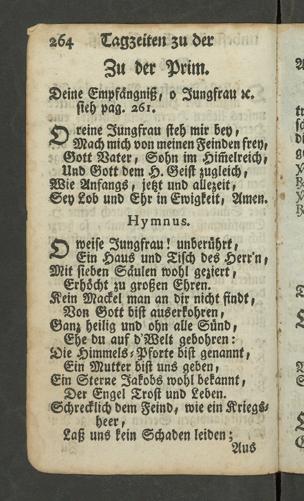 264 Tagzeiten zu der
Zu der Prim.
Deine Empfängniß, o Jungfrau ꝛc.
sieh pag. 261.
O reine Jungfrau steh mir bey,
Mach mich von meinen Feinden frey,
Gott Vater, Sohn im Him̃elreich,
Und Gott dem H. Geist zugleich,
Wie Anfangs, jetzt und allezeit,
Sey Lob und Ehr in Ewigkeit, Amen.
Hymnus.
O weise Jungfrau! unberührt,
Ein Haus und Tisch des Herr'n,
Mit sieben Säulen wohl geziert,
Erhöcht zu großen Ehren.
Kein Mackel man an dir nicht findt,
Von Gott bist auserkohren,
Ganz heilig und ohn alle Sünd,
Ehe du auf d'Welt gebohren:
Die Himmels-Pforte bist genannt,
Ein Mutter bist uns geben,
Ein Sterne Jakobs wohl bekannt,
Der Engel Trost und Leben.
Schrecklich dem Feind, wie ein Kriegs-
heer,
Laß uns kein Schaden leiden;
Aus